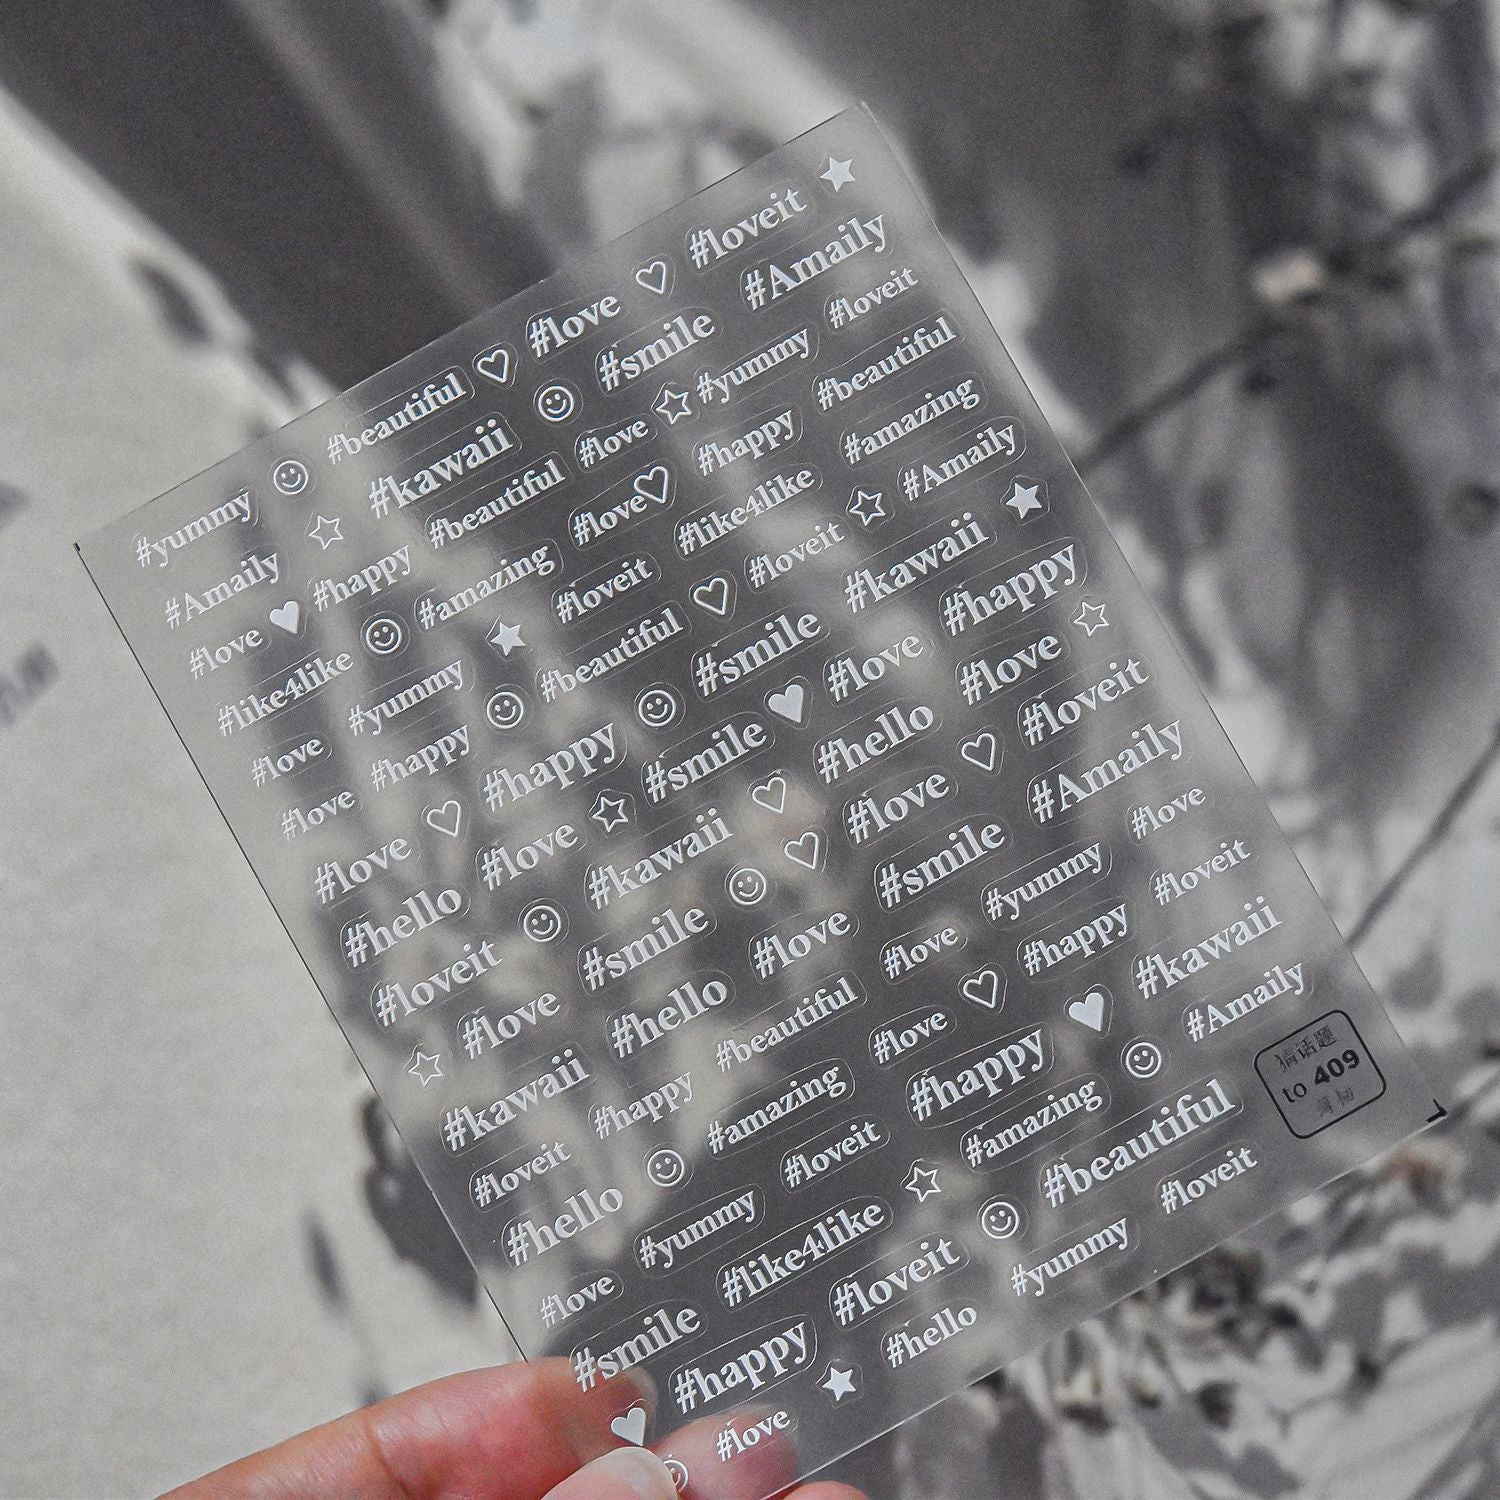 #beautiful #love #loveit
#yummy #kawaii #smile #Amaily
#Amaily #beautiful #love #yummy #loveit
#love #happy #amazing #love #happy #beautiful
#like4like #yummy #loveit #like4like #amazing
#love #happy #beautiful #loveit #Amaily
#love #happy #smile #kawaii
#love #love #smile #love #happy
#hello #kawaii #hello #love
#loveit #smile #love #loveit
#love #hello #love #smile #Amaily
#kawaii #happy #beautiful #love #yummy #love
#loveit #amazing #love #happy #loveit
#hello #yummy #loveit #happy #kawaii
#love #like4like #amazing #Amaily
#smile #loveit #beautiful
#happy #hello #yummy #loveit
#love
猜话题
to 409